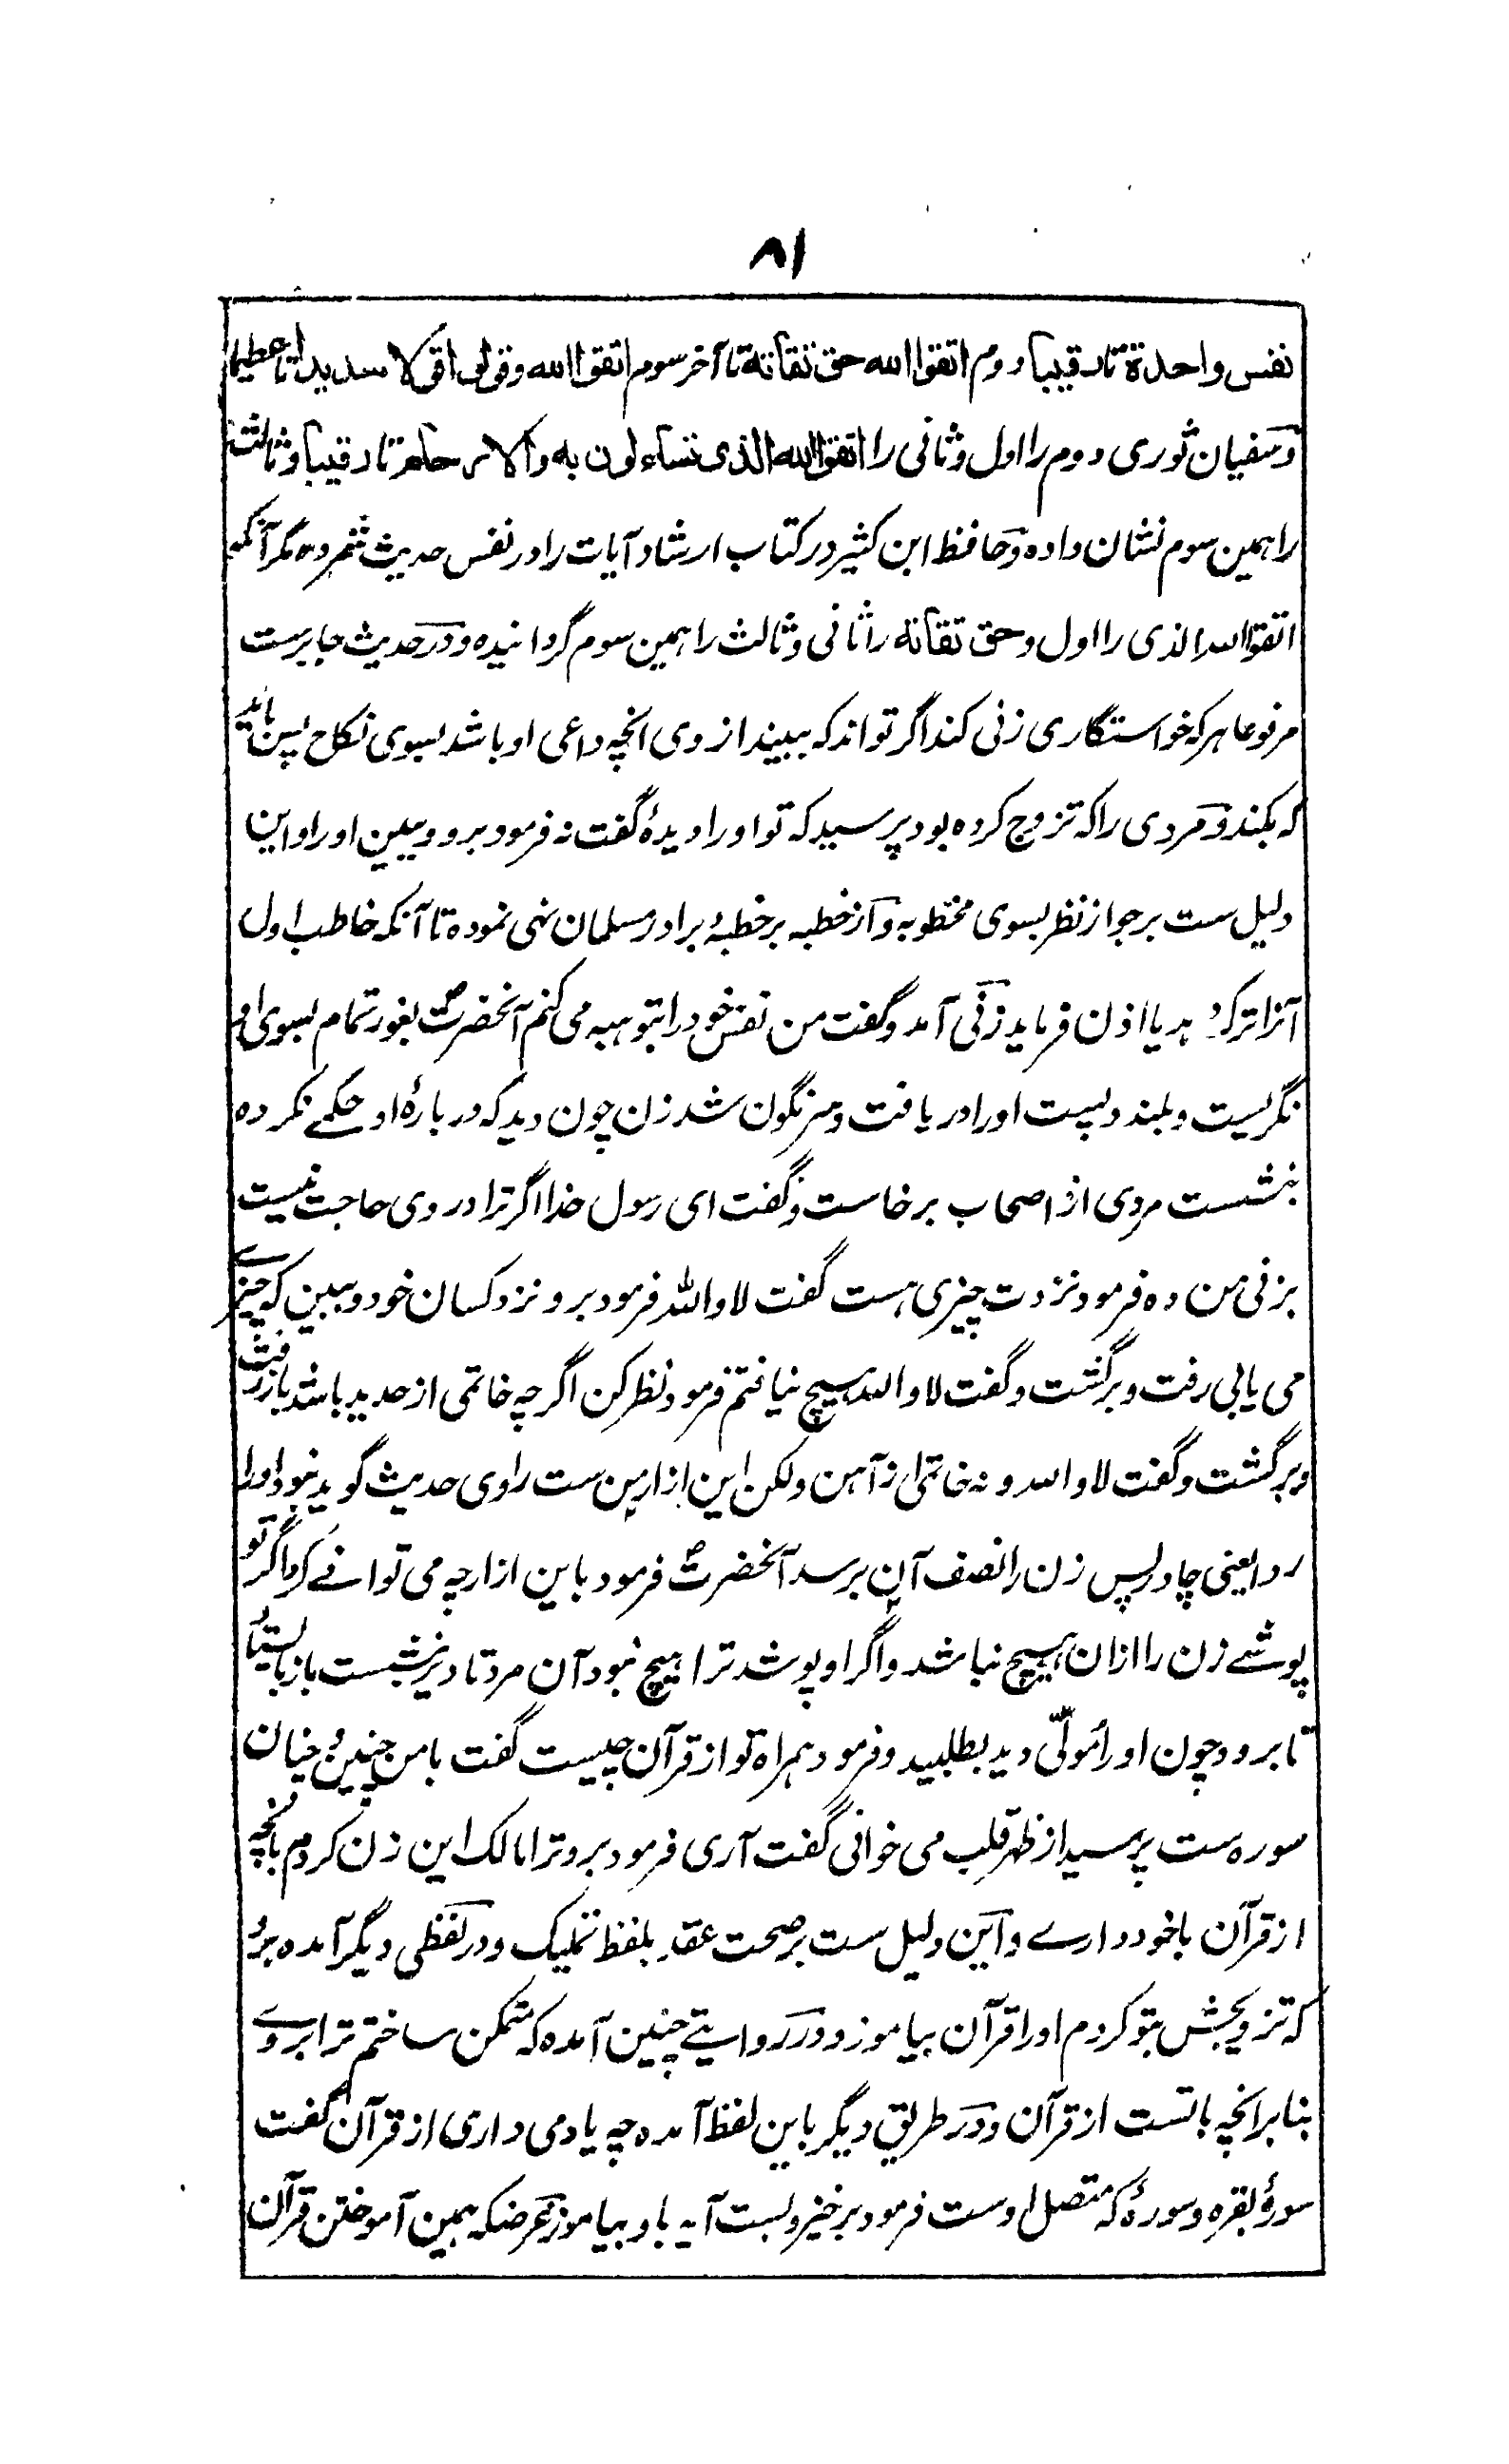 ۸۱
نفس واحدة تا رقیبا دوم اتقوا الله حق تقاته تا آخر سوم اتقوا الله وقولوا قولا سدیدا تا عظیما
وسفیان ثوری دوم را اول وثانی را اتقوا الله الذی تساءلون به والارحام تا رقیبا وثالث
را همین سوم نشان داده وحافظ ابن کثیر در کتاب ارشاد آیات را در نفس حدیث شمرده مگر آنکه
اتقوا الله الذی را اول وحق تقاته را ثانی وثالث را همین سوم گردانیده ودر حدیث جابرست
مرفوعا هر که خواستگاری زنی کند اگر تواند که ببیند از وی انچه داعی او باشد بسوی نکاح پس باید
که بکند ومردی را که تزوج کرده بود پرسید که تو او را دیدۀ گفت نه فرمود برو وببین او را واین
دلیل ست بر جواز نظر بسوی مخطوبه واز خطبه بر خطبۀ برادر مسلمان نهی نموده تا آنکه خاطب اول
آنرا ترک دهد یا اذن فرماید زنی آمد وگفت من نفس خود را بتو هبه می کنم آنحضرت ؐ بغور تمام بسوی او
نگریست وبلند وپست او را دریافت وسرنگون شد زن چون دید که در بارۀ او حکمے نکرده
بنشست مردی از اصحاب برخاست وگفت ای رسول خدا اگر ترا در وی حاجت نیست
بزنی من ده فرمود نزدت چیزی هست گفت لا والله فرمود برو نزد کسان خود وببین که چیزے
می یابی رفت وبرگشت وگفت لا والله هیچ نیافتم فرمود نظر کن اگرچه خاتمی از حدید باشد باز رفت
وبرگشت وگفت لا والله ونه خاتمی از آهن ولکن این ازار من ست راوی حدیث گوید نبود او را
ردا یعنی چادر پس زن را نصف آن برسد آنحضرت ؐ فرمود باین ازار چه می توانے کرد اگر تو
پوشے زن را ازان هیچ نباشد واگر او پوشد ترا هیچ نبود آن مرد تا دیر بنشست باز بایستاد
تا برود چون او را مولّی دید بطلبید وفرمود همراه تو از قرآن چیست گفت با من چنین وچنان
سوره ست پرسید از ظهر قلب می خوانی گفت آری فرمود برو ترا مالک این زن کردم بانچه
از قرآن با خود دارے واین دلیل ست بر صحت عقد بلفظ تملیک ودر لفظی دیگر آمده برو
که تزویجش بتو کردم او را قرآن بیاموز ودر روایتے چنین آمده که متمکن ساختم ترا بروے
بنابر انچه با تست از قرآن ودر طریق دیگر باین لفظ آمده چه یاد می داری از قرآن گفت
سورۀ بقره وسورۀ که متصل اوست فرمود برخیز وبست آیه باو بیاموز غرضکه همین آموختن قرآن